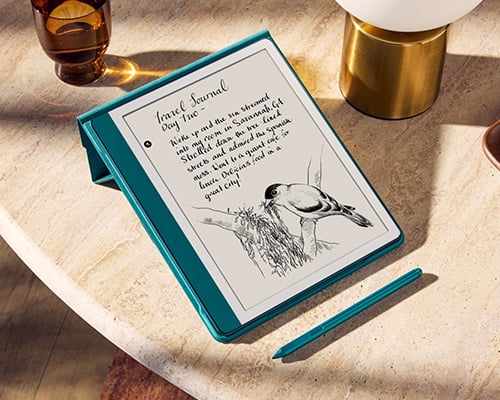 Travel Journal
Day Two -
Woke up and the sun streamed
into my room in Savannah, GA.
Strolled down the tree lined
streets and admired the Spanish
moss. Went to a great cafe for
lunch. Delicious food in a
great city!